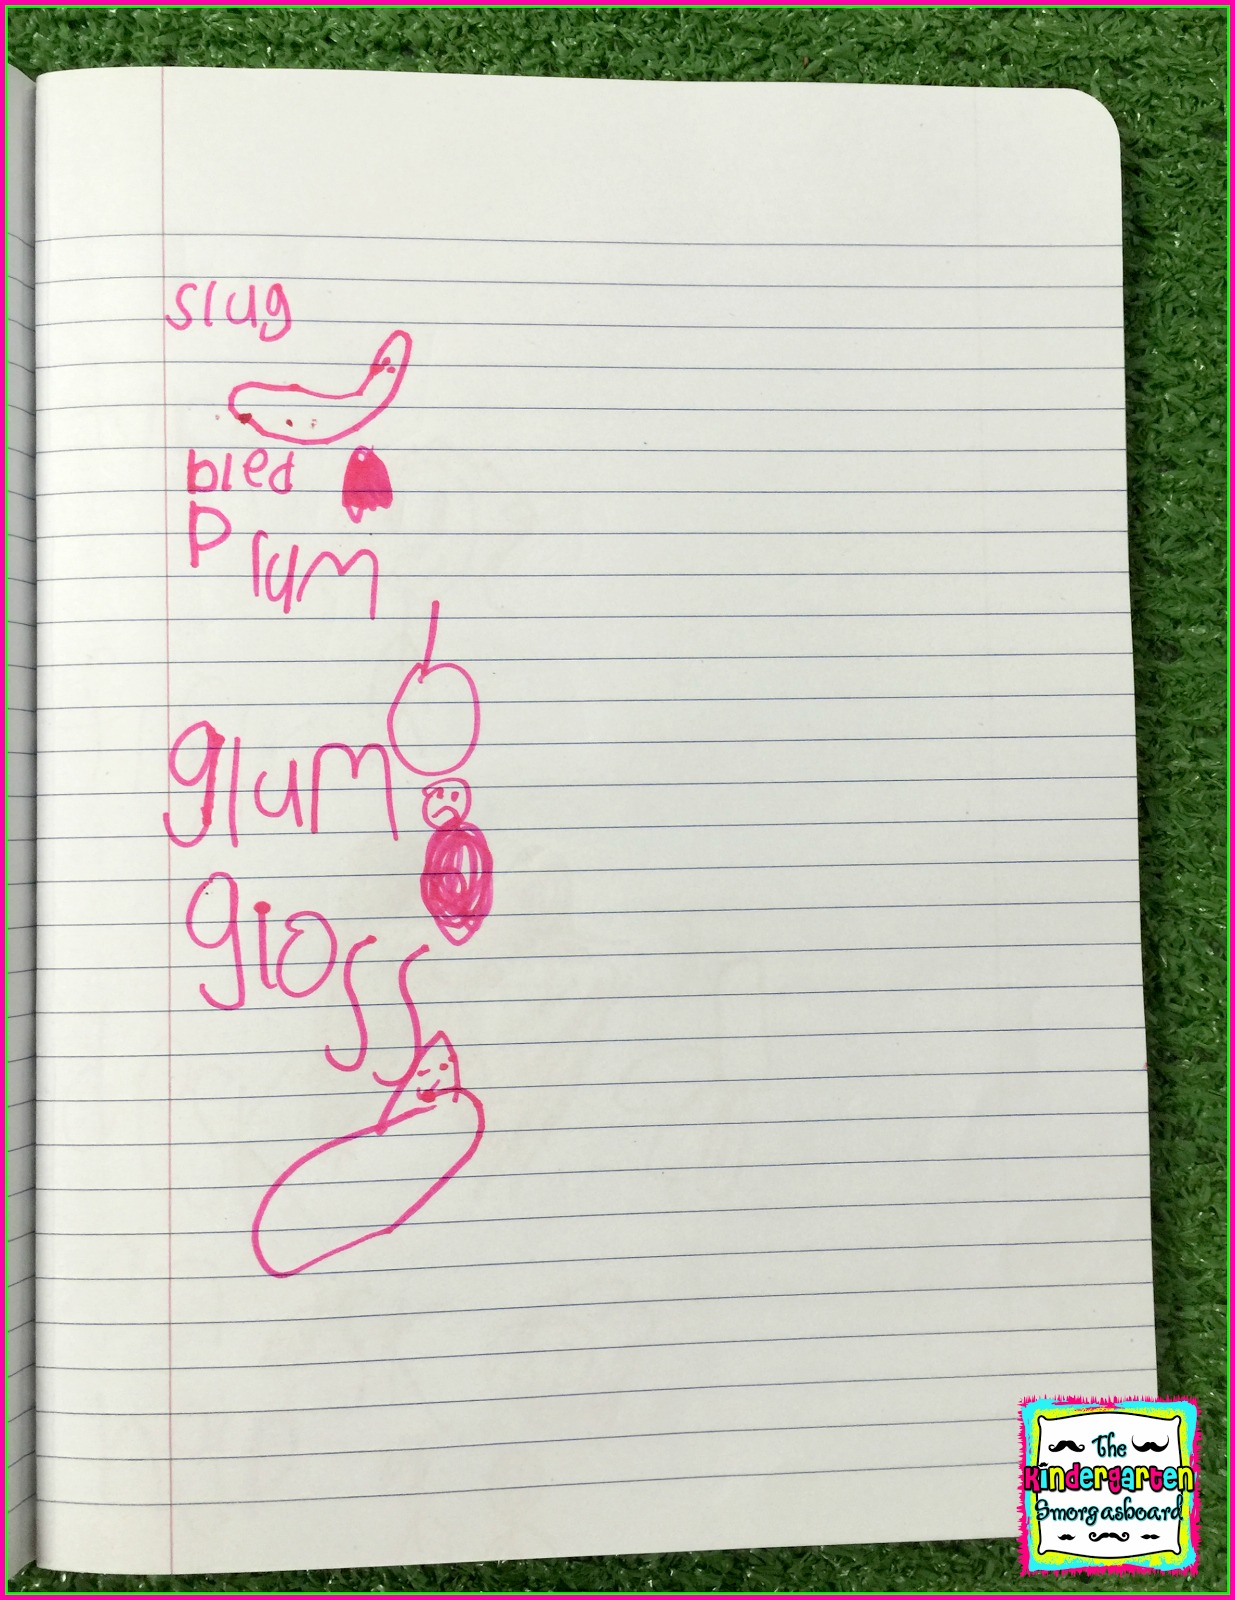 slug
bled
plum
glum
gloss
The
Kindergarten
Smorgasboard